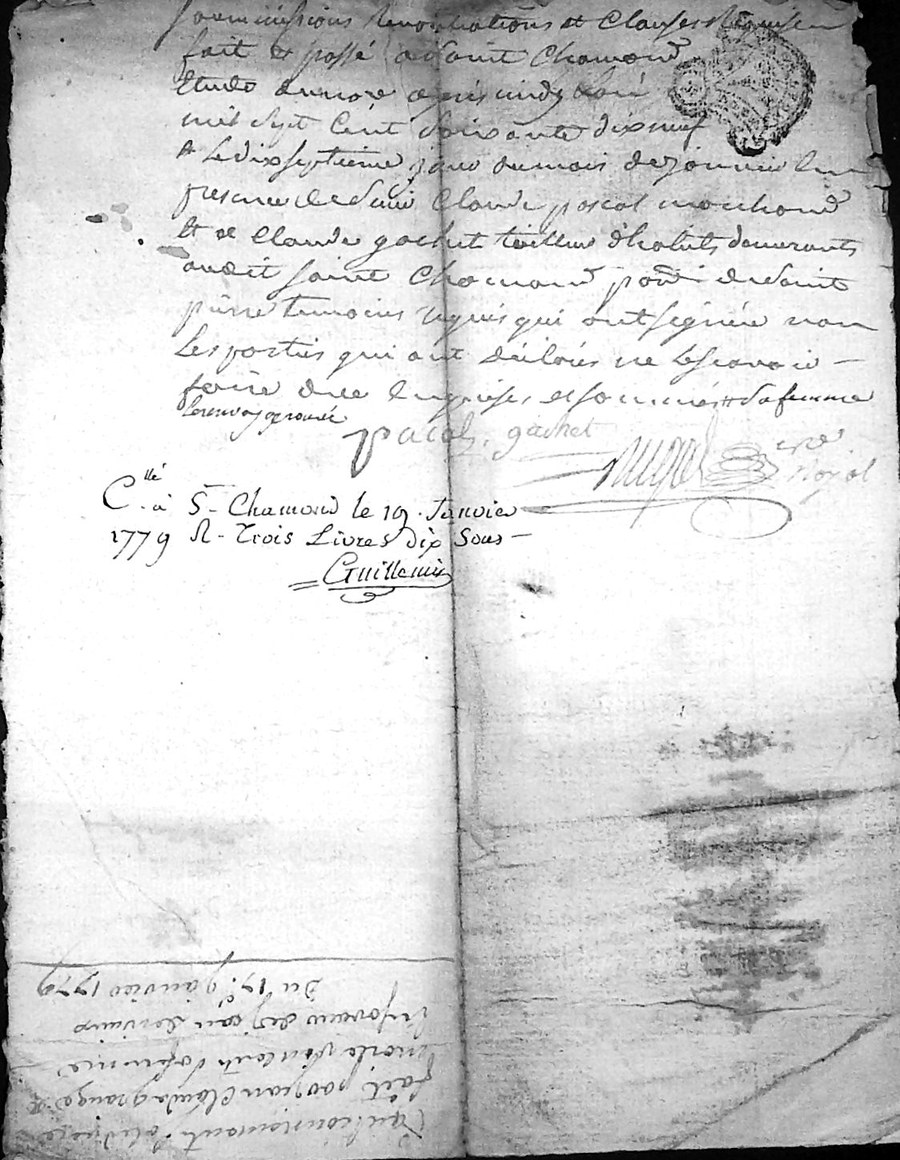 soumissions Renonciations et Clauses Requises
fait et passé a Saint Chamond
Etude du nore après midy
mil Sept Cent Soixante dix neuf
& le dix septieme jour du mois de janvier En
presence de Sieur Claude pascal marchand
Et de Claude gachet tailleur d'habits demeurants
audit Saint Chamond parr de Saint
pierre temoins requis qui ont signée non
Les parties qui ont déclarés ne le scavoir
faire de ce Enquises et sommés # Sa femme
Le renvoy aprouvé
pascal. gachet
nre Royal
C.llé à St Chamond le 19 Janvier
1779 R. Trois Livres dix Sous
Guillemin
Du 17e janvier 1779
En faveur de jean
marie sa femme
fait par jean Claude grange